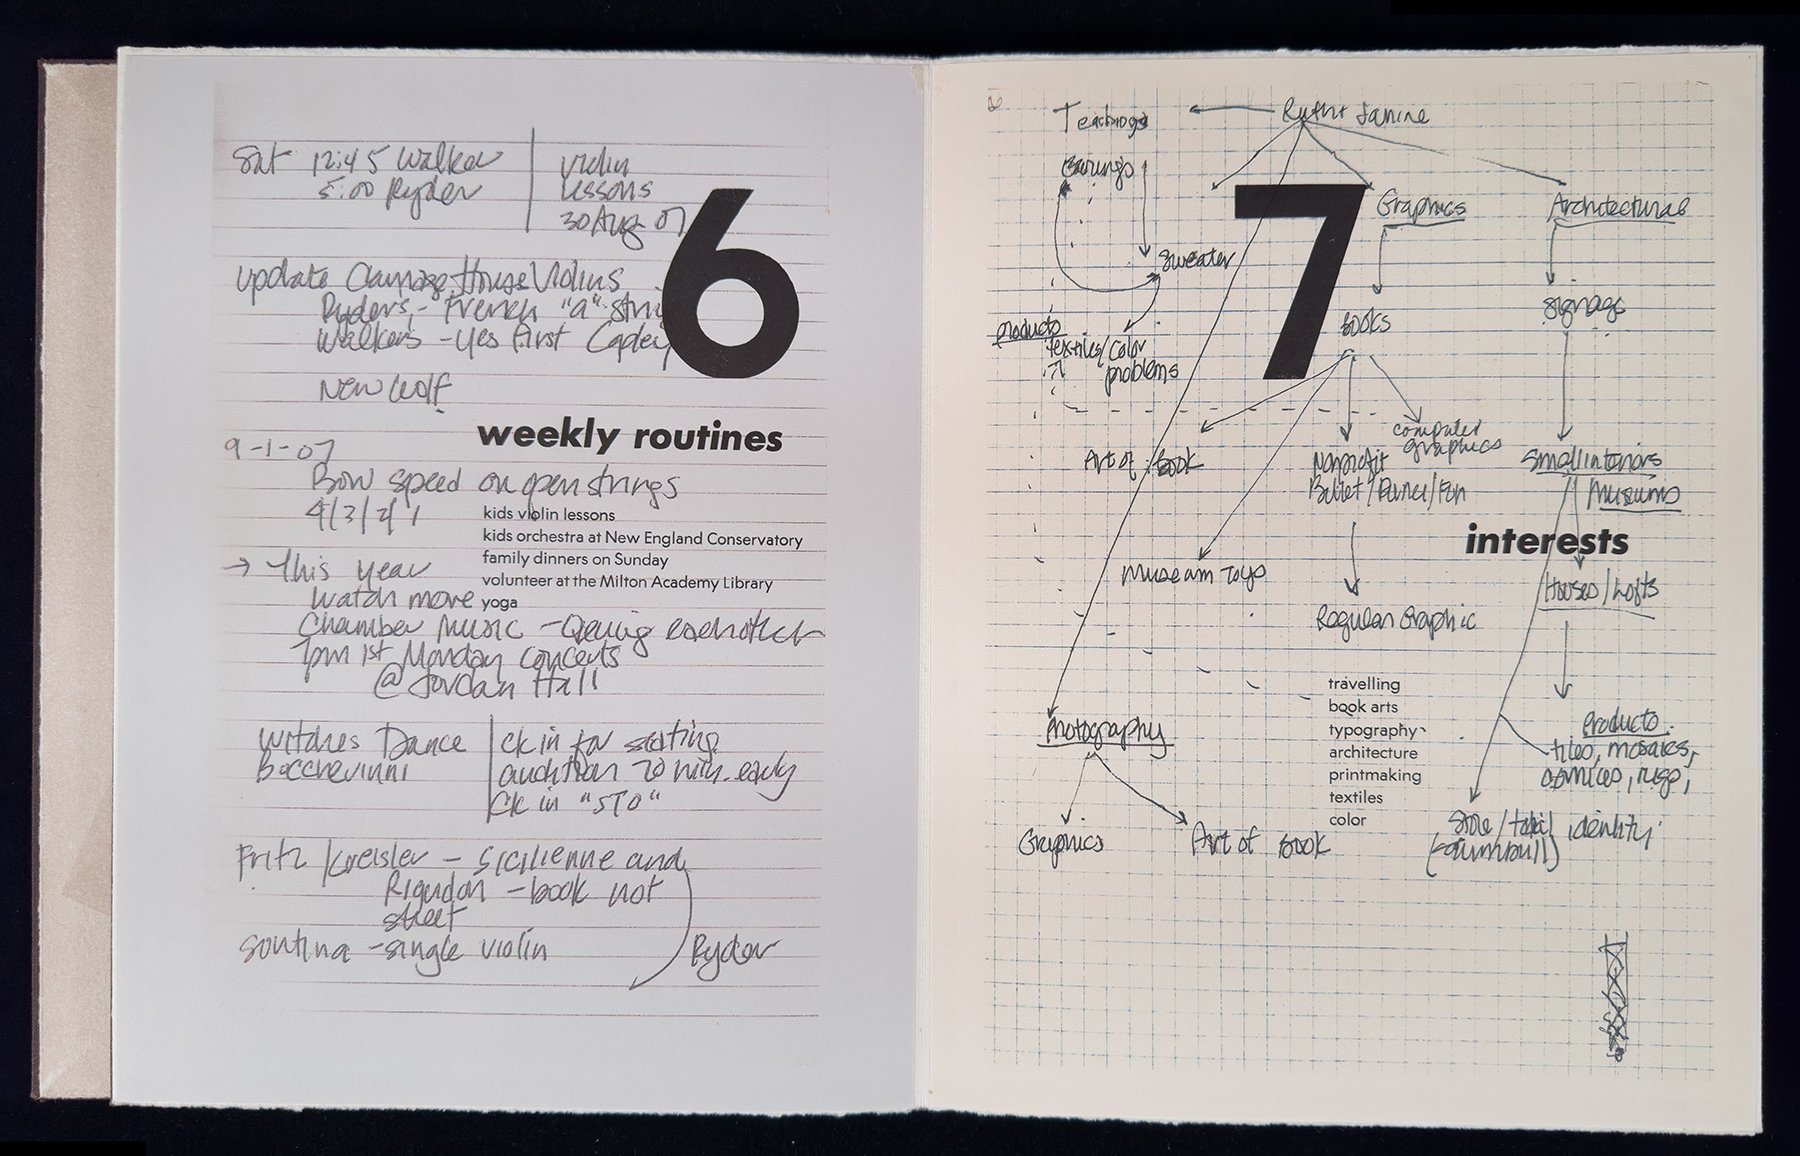 Sat 12:45 Walker
5:00 Ryder
violin
lessons
30 Aug 07
6
update Carriage House Violins
Ryders - French "a" stri
Walkers - yes First Copley
New Wolf
weekly routines
9-1-07
Bow speed on open strings
4/3/2/1
kids violin lessons
kids orchestra at New England Conservatory
family dinners on Sunday
volunteer at the Milton Academy Library
yoga
→ This year
watch more
Chamber Music -
7pm 1st Monday concerts
@ Jordan Hall
Witches Dance
Boccherinni
ck in for
audition 20 min. early
ck in "STO"
Fritz Kreisler - Sicilienne and
Rigudon - book not
sheet
- single violin
Ryder
7
Ruth + Janine
Teachings
Graphics
Architectural
sweater
products
textiles/color
problems
books
signage
Art of book
computer
graphics
Nonprofit
Ballet/Dance/Fun
Small interiors
Museums
interests
Museum Toys
Houses/Lofts
Regular Graphic
travelling
book arts
typography
architecture
printmaking
textiles
color
Photography
Products
tiles, mosaics,
rugs,
Graphics
Art of book
Store/total identity